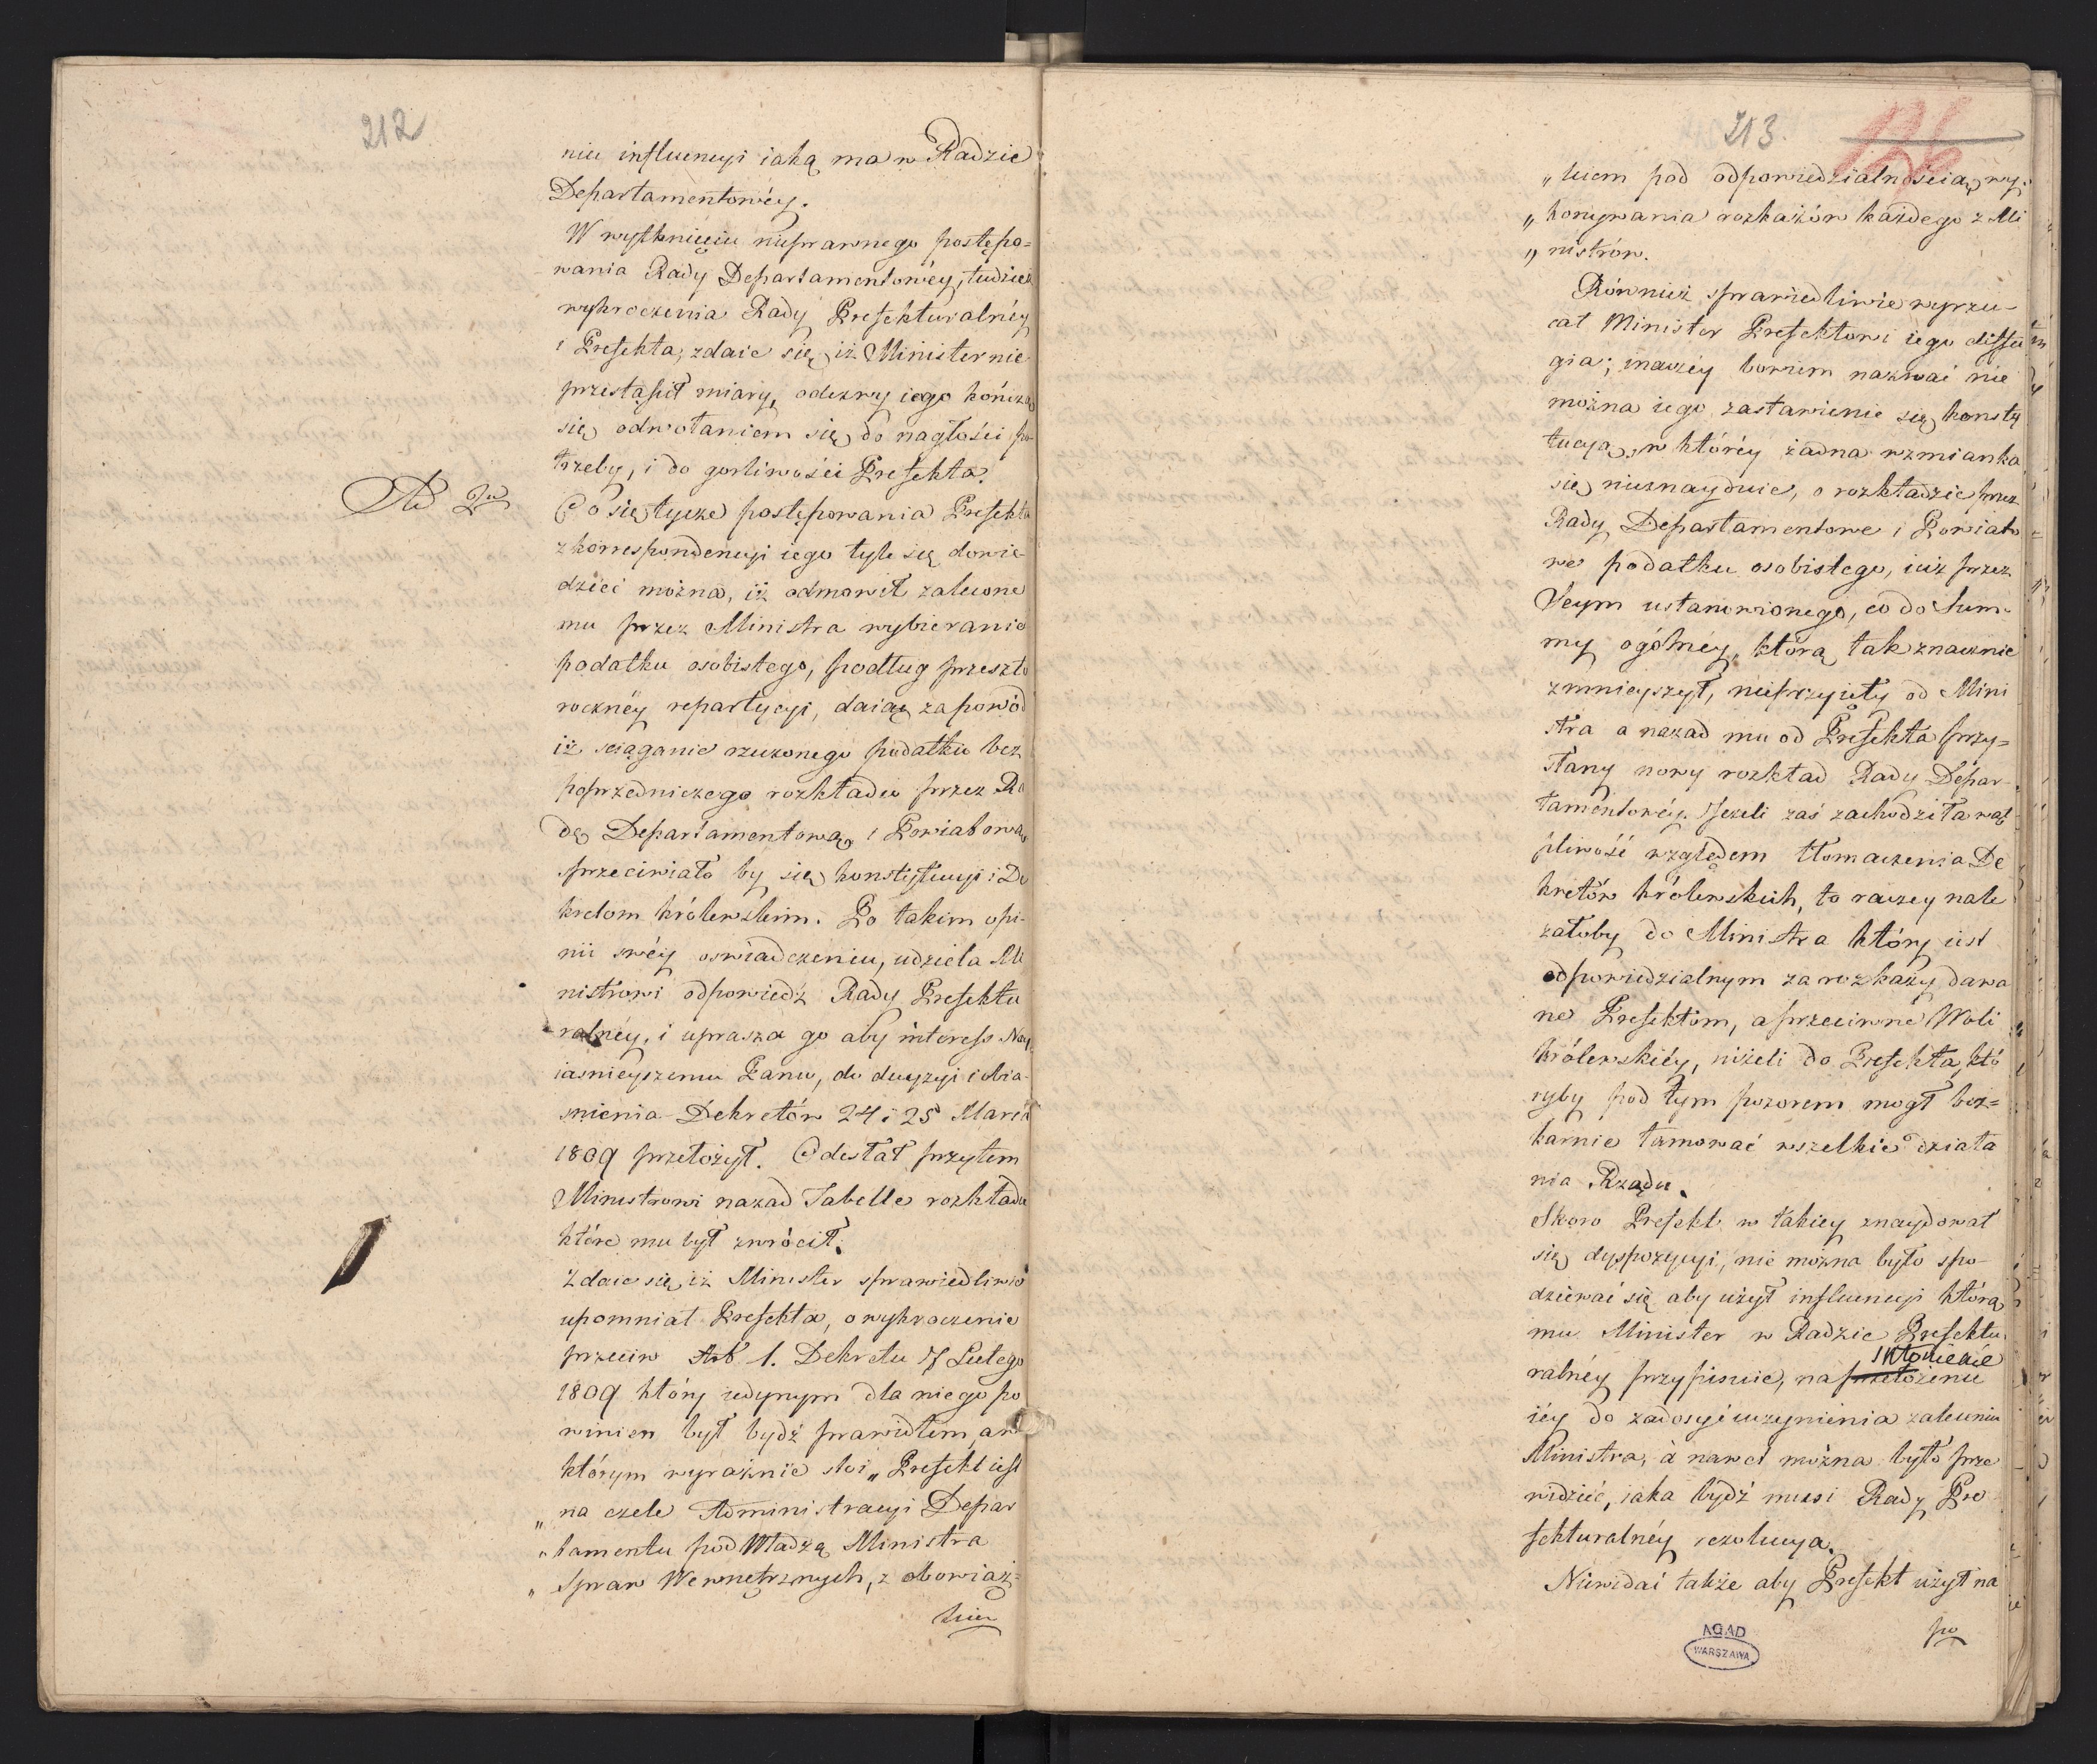 212
niu influencyi iaką ma w Radzie
Departamentowéy.
W wytknięciu nieprawnego postępo=
wania Rady Departamentowéy, tudzież
wykroczenia Rady Prefekturalnéy
i Prefekta, zdaie się iż Minister nie
przestąpił miary, odezwy iego kończą
się odwołaniem się do nagłości po-
trzeby, i do gorliwości Prefekta.
Ad 2um
Co się tycze postępowania Prefekta
z korrespondencyi iego tyle się dowie-
dzieć można, iż odmówił zalecone
mu przez Ministra wybieranie
podatku osobistego, podług przeszło
rocznéy repartycyi, daiąc za powód
iż sciąganie rzuconego podatku bez
poprzedniczego rozkładu przez Ra
dę Departamentową i Powiatową
przeciwiało by się konstytucyi i De
kretom królewskim. Po takim opi-
nii swéy oswiadczeniu, udziela Mi
nistrowi odpowiedź Rady Prefektu
ralnéy, i uprasza go aby interess Nay
iasnieyszemu Panu, do decyzyi i obia-
snienia Dekretów 24 i 25 Marca
1809 przełożył. Odesłał przytem
Ministrowi nazad Tabelle rozkładu
które mu był zwrócił.
Zdaie się iż Minister sprawiedliwie
upomniał Prefekta, o wykroczenie
przeciw Art. 1. Dekretu 7 Lutego
1809 który iedynym dla niego po
winien był bydź prawidłem, a w
którym wyraźnie stoi „Prefekt iest
„ na czele Administracyi Depar
„ tamentu pod Władzą Ministra
„ Spraw Wewnętrznych, z obowiąz=
kiem
213.
126
„ kiem pod odpowiedzialnością wy-
„ konywania rozkazów każdego z Mi
„ nistrów.
Również sprawiedliwie wyrzu-
cał Minister Prefektowi iego diffu
gia; inaczéy bowiem nazwać nie
można iego zastawienie się konsty
tucyą, w któréy żadna wzmianka
się nieznayduie, o rozkładzie przez
Rady Departamentowe i Powiato
we podatku osobistego, iuż przez
Seym ustanowionego, co do Sum-
my ogólnéy, którą tak znacznie
zmnieyszył, nieprzyięty od Mini
stra a nazad mu od Prefekta przy=
słany nowy rozkład Rady Depar-
tamentowéy. Jeżeli zaś zachodziła wąt
pliwość względem tłomaczenia De
kretów królewskich, to raczey nale
żałoby do Ministra który iest
odpowiedzialnym za rozkazy dawa
ne Prefektom, a przeciwne Woli
królewskiéy, niżeli do Prefekta, któ
ryby pod tym pozorem mogł bez=
karnie tamować wszelkie działa
nia Rządu.
Skoro Prefekt w takiey znaydował
się dyspozycyi, nie można było spo-
dziewać się aby użył influencyi którą
mu Minister w Radzie Prefektu
ralnéy przypisuie, na przełożenie
skłonienie
iéy do zadosyć uczynienia zaleceniu
Ministra, a nawet można było prze
widzieć, iaka bydź musi Rady Pre
fekturalnéy rezolucya.
Niewidać także aby Prefekt użył na
po
AGAD
WARSZAWA